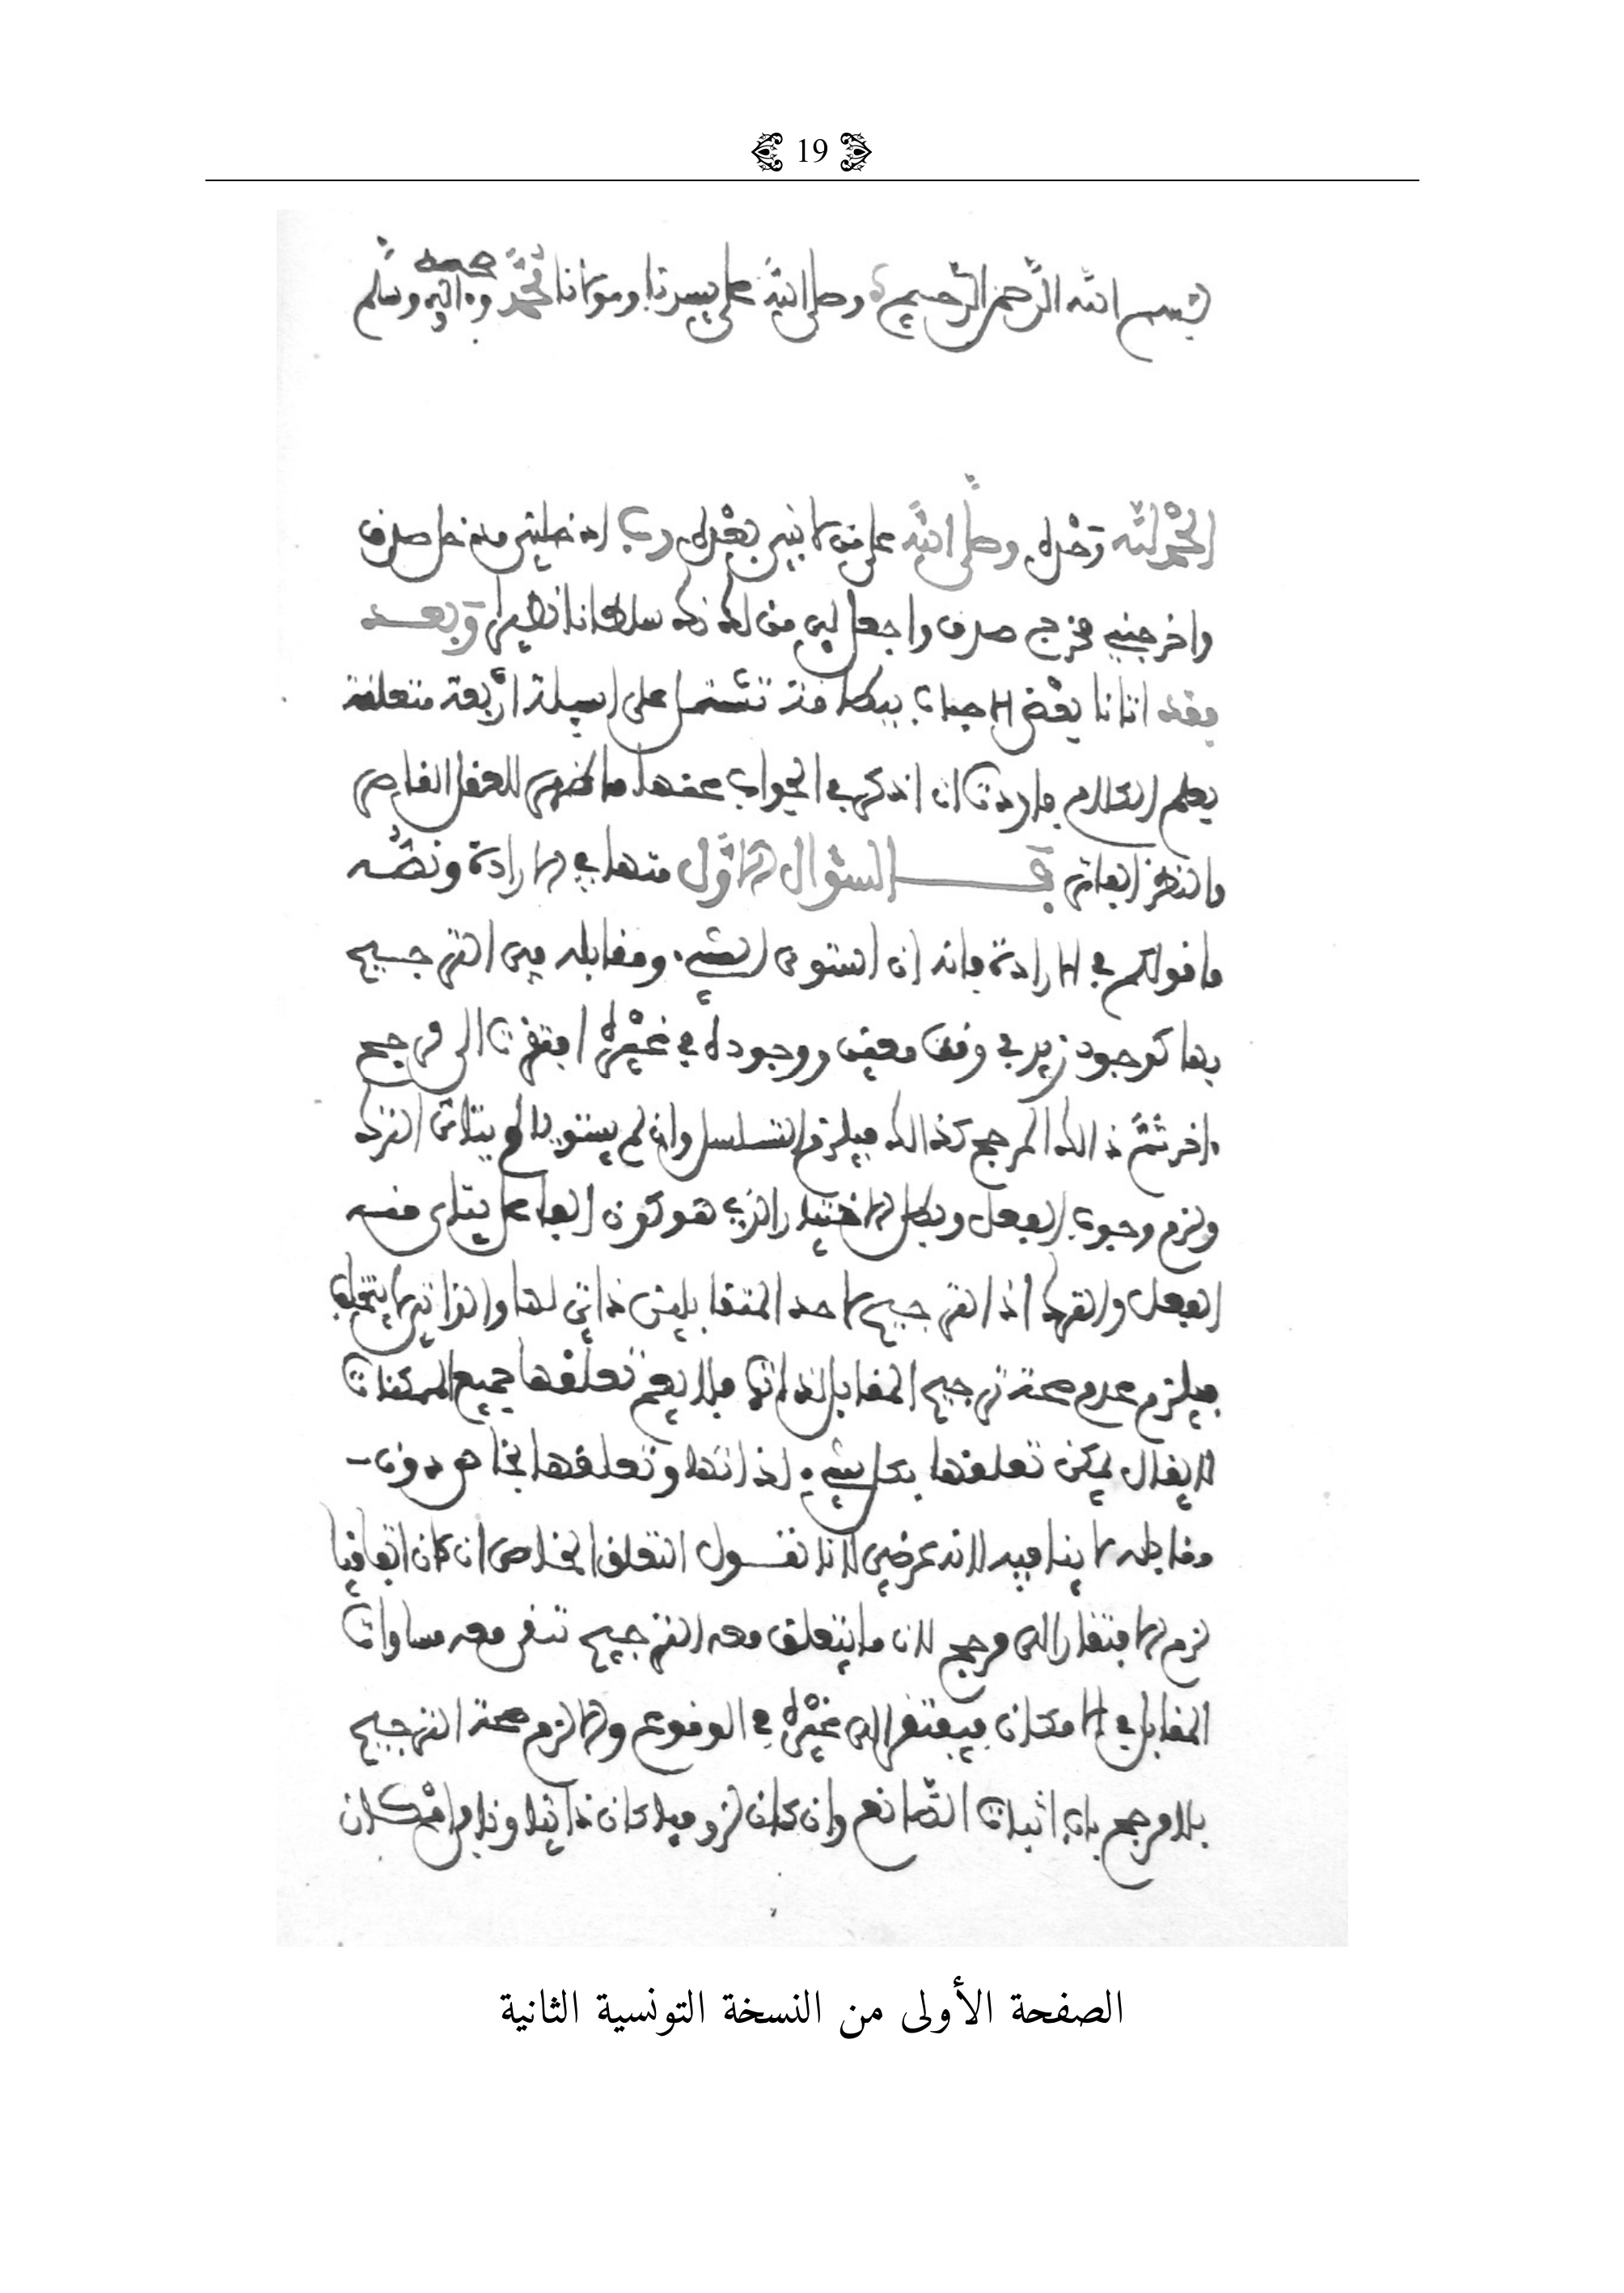 19
بسم الله الرحمن الرحيم وصلى الله على سيدنا ومولانا محمد وءاله وصحبه وسلم
الحمد لله وحده وصلى الله على من لا نبي بعده رب ادخلني مدخل صدق
واخرجني مخرج صدق واجعل لي من لدنك سلطانا نصيرا وبعد
فقد اتانا بعض الاحباء ببطاقة تشتمل على اسيلة اربعة متعلقة
بعلم الكلام فاردت ان اذكر في الجواب عنها ما ظهر للعقل القاصر
والنظر الفاتر السؤال الاول منها في الارادة ونصه
ما قولكم في الارادة فانه ان استوى الشيء ومقابله في الترجيح
بها كوجود زيد في وقت معين ووجوده في غيره افتقرت الى مرجح
ءاخر ثم ذالك المرجح كذالك فيلزم التسلسل وان لم يستويا لم يتات الترك
ولزم وجوب الفعل وبطل الاختيار الذي هو كون الفاعل يتاتى منه
الفعل والترك اذ الترجيح لاحد المتقابلين ذاتي لها والذاتي لا يتخلف
فيلزم عدم صحة ترجيح المقابل لذاتها فلا يعم تعلقها جميع الممكنات
لا يقال يمكن تعلقها بكل شيء لذاتها وتعلقها بخاص دون
مقابله لا ينافيه لانه عرضي لانا نقول التعلق الخاص ان كان اتفاقيا
لزم الافتقار الى مرجح لان ما يتعلق معه الترجيح تتقرر معه مساوات
المقابل في الامكان فيفتقر الى غيره في الوقوع والا لزم صحة الترجيح
بلا مرجح باب اثبات الصانع وان كان لزوميا كان ذاتيا ونافى امكان
الصفحة الأولى من النسخة التونسية الثانية